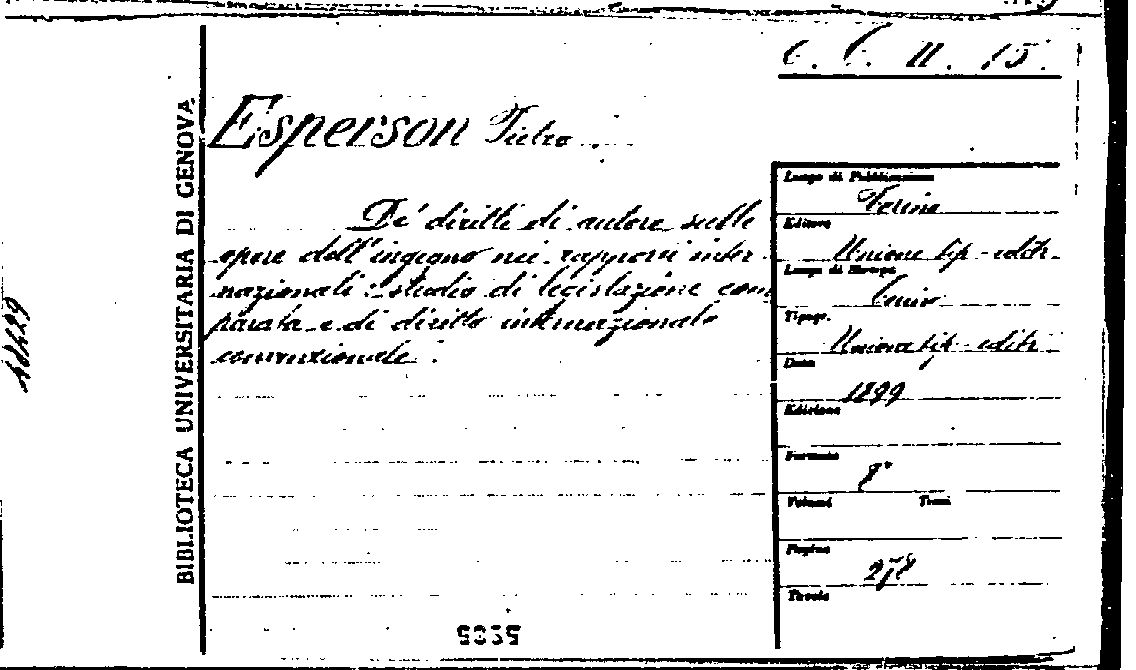 6. C. II. 15.
BIBLIOTECA UNIVERSITARIA DI GENOVA
Esperson Pietro.
De' diritti di autore sulle
opere dell'ingegno nei rapporti inter-
nazionali: studio di legislazione com
parata e di diritto internazionale
convenzionale.
Luogo di Pubblicazione
Torino
Editore
Unione tip-editr.
Luogo di Stampa
Torino
Tipogr.
Unione tip-editr
Data
1899
Edizione
Formato
8°
Volumi Tomi
Pagine
278
Tavole